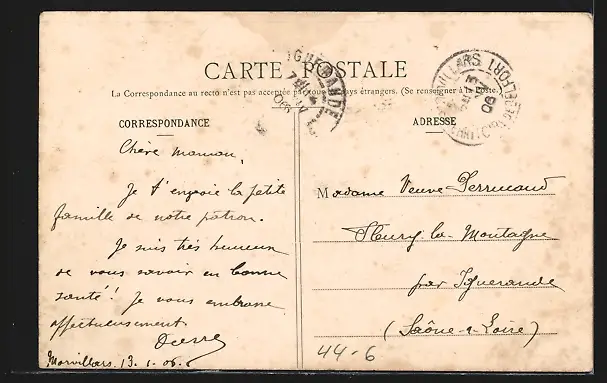 CARTE POSTALE
La Correspondance au recto n'est pas acceptée par tous pays étrangers. (Se renseigner à la Poste.)
CORRESPONDANCE
Chère maman,
Je t'envoie la petite
famille de notre patron.
Je suis très heureux
de vous savoir en bonne
santé! Je vous embrasse
affectueusement
Morvillars, 13.1.06.
ADRESSE
Madame Veuve Perrucaud
Fleury-la-Montagne
par Iguerande
(Saône-&-Loire)
44-6
IGUERANDE
MORVILLARS
BELFORT
06